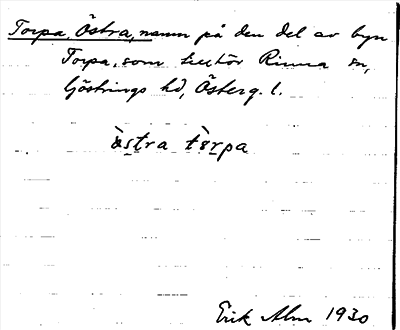 Torpa, Östra, namn på den del av byn
Torpa, som tillhör Rinna sn,
Göstrings hd, Österg. l.
östra tɷrpa
Erik Alm 1930